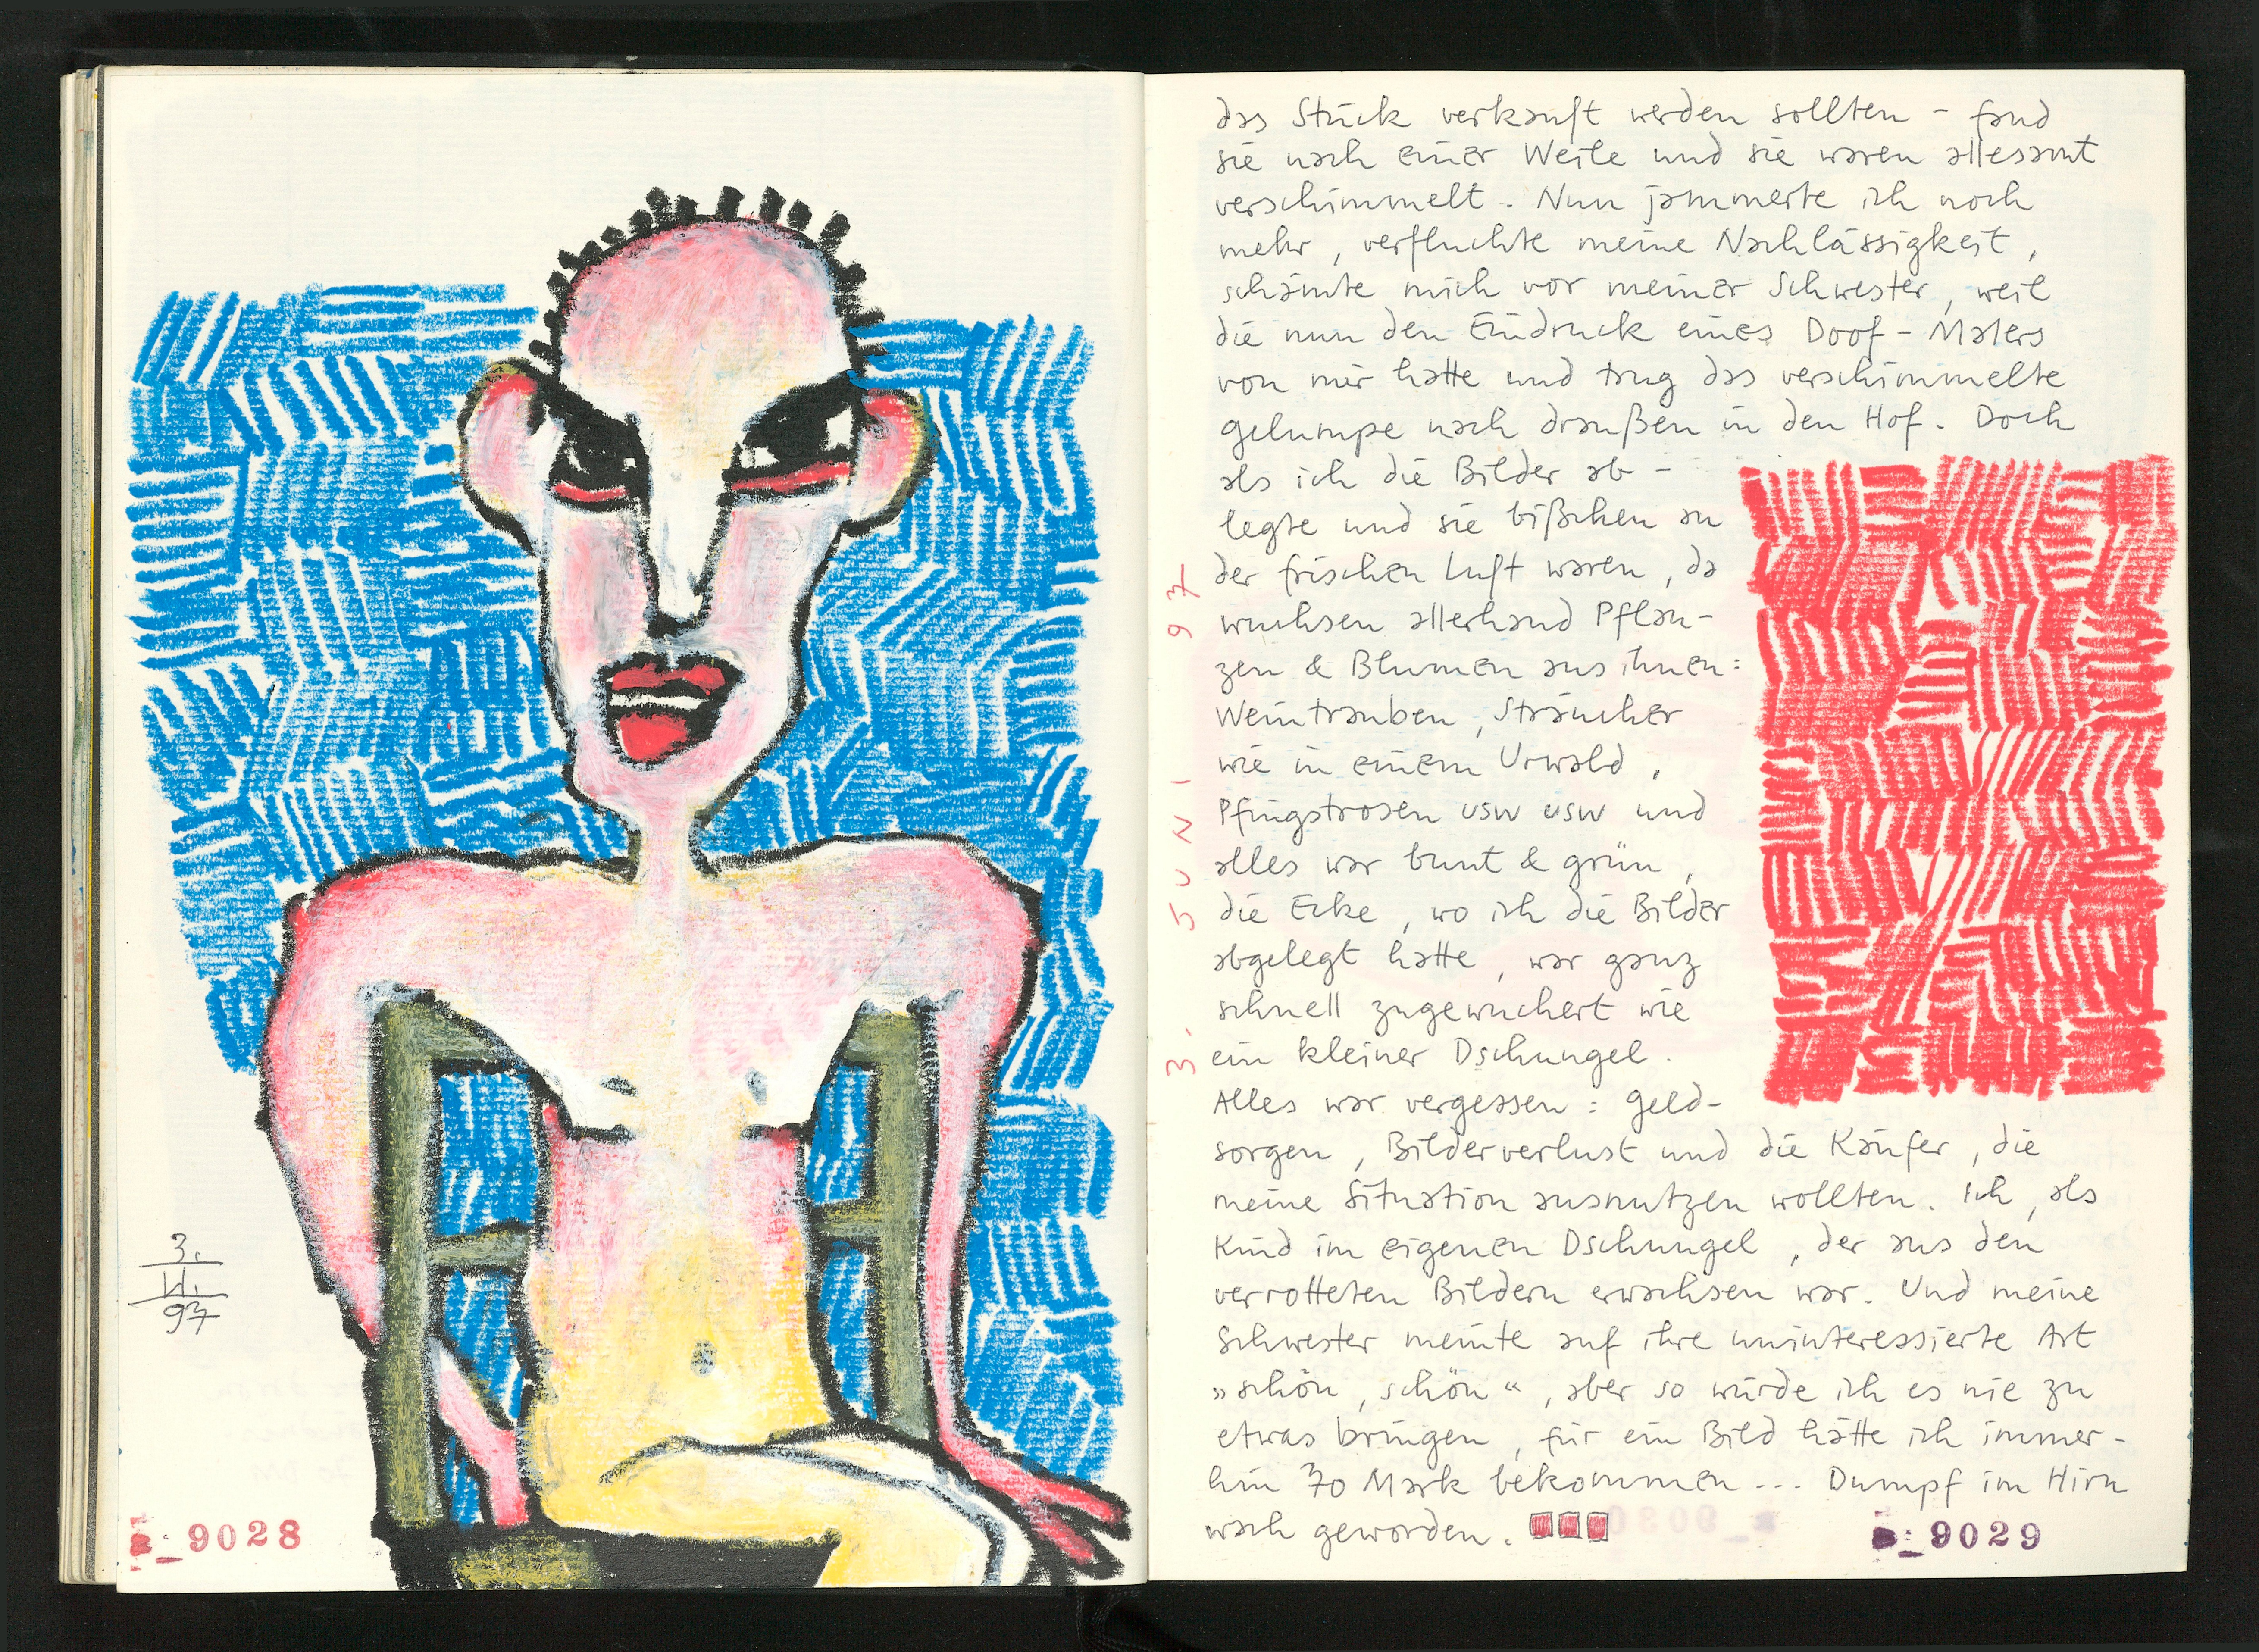 3.
VI.
97
9028
das Stück verkauft werden sollten – fand
sie nach einer Weile und sie waren allesamt
verschimmelt. Nun jammerte ich noch
mehr, verfluchte meine Nachlässigkeit,
schämte mich vor meiner Schwester, weil
die nun den Eindruck eines Doof-Malers
von mir hatte und trug das verschimmelte
Gelumpe nach draußen in den Hof. Doch
als ich die Bilder ab-
legte und sie bißchen an
der frischen Luft waren, da
wuchsen allerhand Pflan-
zen & Blumen aus ihnen:
Weintrauben, Sträucher
wie in einem Urwald,
Pfingstrosen usw usw und
alles war bunt & grün,
die Ecke, wo ich die Bilder
abgelegt hatte, war ganz
schnell zugewuchert wie
ein kleiner Dschungel.
Alles war vergessen: Geld-
sorgen, Bilderverlust und die Käufer, die
meine Situation ausnutzen wollten. Ich, als
Kind im eigenen Dschungel, der aus den
verrotteten Bildern erwachsen war. Und meine
Schwester meinte auf ihre uninteressierte Art
»schön, schön“, aber so würde ich es nie zu
etwas bringen, für ein Bild hätte ich immer-
hin 70 Mark bekommen... Dumpf im Hirn
wach geworden.
3. JUNI 97
9029